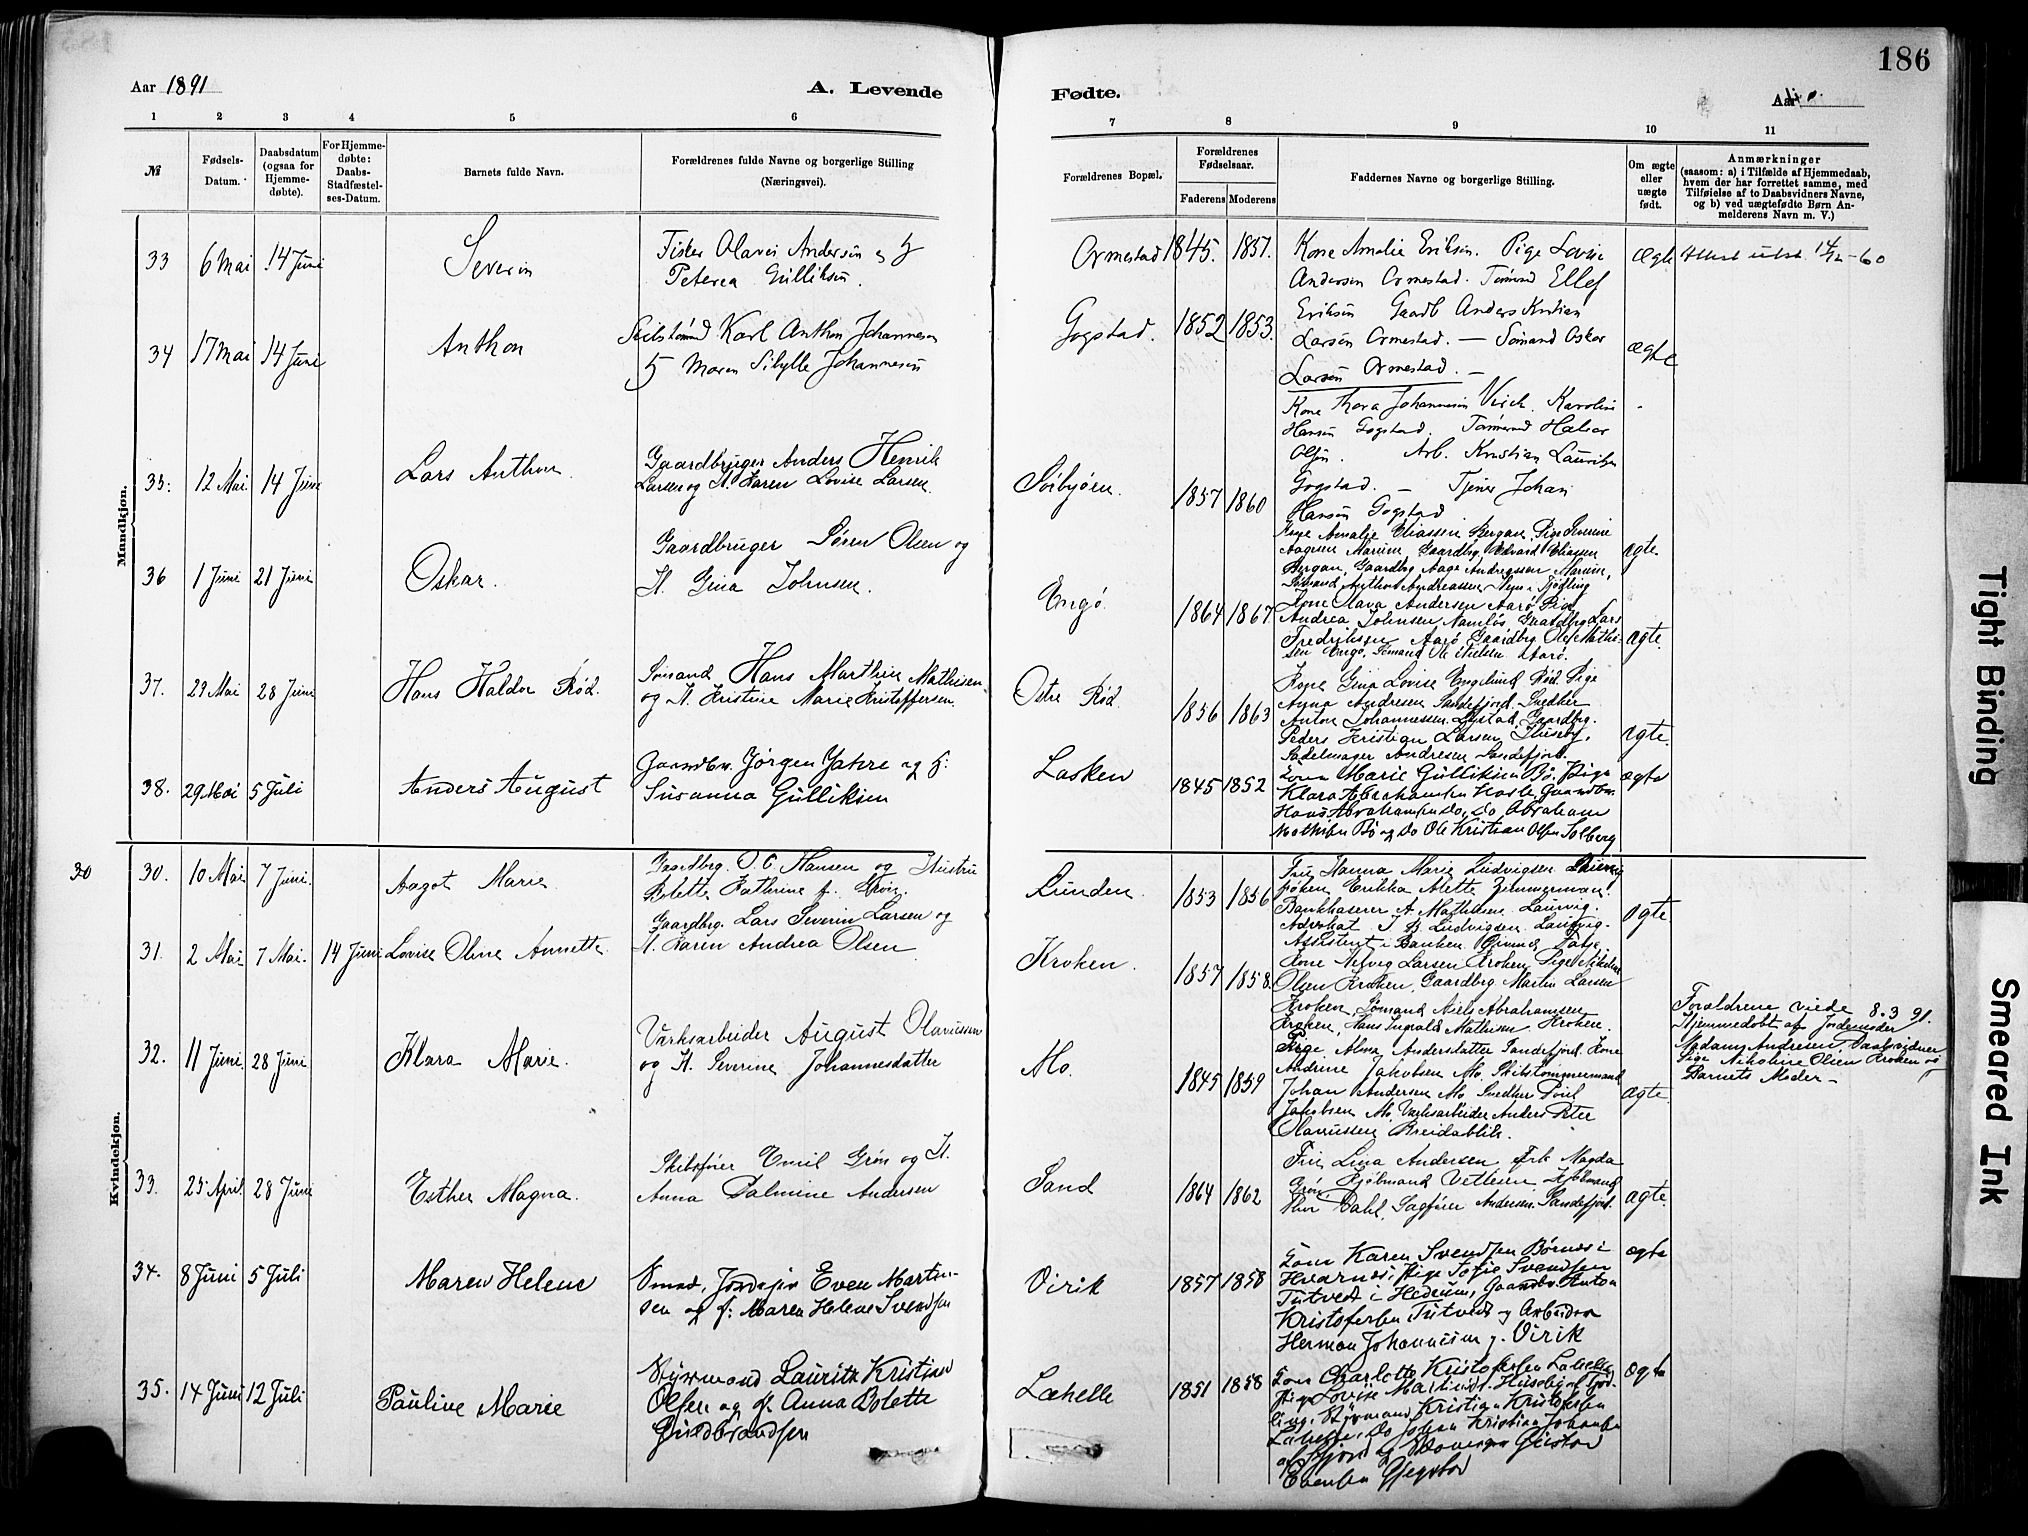 186
Aar 1891
A. Levende
Fødte.
Aar
1 2 3 4 5 6 7 8 9 10 11
№
Fødsels-Datum.
Daabsdatum (ogsaa for Hjemmedøbte).
For Hjemmedøbte: Daabs-Stadfæstelses-Datum.
Barnets fulde Navn.
Forældrenes fulde Navne og borgerlige Stilling (Næringsvei).
Forældrenes Bopæl.
Forældrenes Fødselsaar.
Faderens Moderens
Faddernes Navne og borgerlige Stilling.
Om ægte eller uægte født.
Anmærkninger
(saasom: a) i Tilfælde af Hjemmedaab, hvem der har forrettet samme, med Tilføielse af to Daabsvidners Navne, og b) ved uægtefødte Børn Anmelderens Navn m. V.)
Mandkjøn.
33 6 Mai 14 Juni Severin
Fisker Olaves Andersen og H
Peterea Gulliksen.
Ormestad 1845. 1857.
Kone Amalie Eriksen. Pige Lovise
Andersen Ormestad. Tømmd Ellef
Eriksen Gaardb Anders Kristian
Larsen Ormestad. — Sømand Oskar
Larsen Ormestad. —
Ægte
34 17 Mai 14 Juni Anthon
Karl Anthon Johannesen
H Maren Sibylle Johannesen
Gogstad. 1852 1853.
Kone Thora Johannesen Virik. Karoline
Hansen Gogstad. Tømmermd Halvor
Olsen. Arb. Kristian Lauritzen
Gogstad. — Tjener Johan
Hansen Gogstad
ægte
35. 12 Mai. 14 Juni Lars Anthon
Gaardbruger Anders Henrik
Larsen og H. Karen Lovise Larsen.
1857 1860
Kone Amalie Eliassen Bergan, Pige Severine
Aagesen Marum, Gaardbrg. Edvard Eliassen
Bergan, Gaardbg Aage Andreassen Marum,
Sømand Anthon Andreassen i Tjødling
ægte
36 1 Juni 21 Juni Oskar.
Gaardbruger Søren Olsen og
H. Gina Johnsen.
Engø. 1864 1867
Kone Olava Andersen Aarø, Pige
Andrea Johnsen Namløs, Gaardbg Lars
Fredriksen Aarø, Gaardbg. Olef Mathi-
sen Engø, Sømand Ole Nielsen Aarø.
ægte.
37. 29 Mai 28 Juni Hans Haldor Rød.
Sømand Hans Marthin Mathisen
og H. Kristine Marie Kristoffersen.
Østre Rød. 1856 1863
Kone Gina Lovise Engelund Rød Pige
Anna Andresen Sandefjord. Snedker
Anton Johannessen Gaardbrg.
Peder Kristian Larsen Huseby,
Sadelmager Andresen Sandefjord.
ægte.
38. 29 Mai 5 Juli Anders August
Gaardbr. Jørgen Jahre og H:
Susanna Gulliksen
Lasken 1845 1852
Kone Marie Gulliksen Bø, Pige
Klara Abrahamsen Hasle, Gaardbr.
Hans Abrahamsen do, do Abraham
Mathisen Bø og do Ole Kristian Olsen Solberg
ægte
Kvindekjøn.
30 30. 10 Mai 7 Juni. Aagot Marie
Gaardbrg. O. C. Hansen og Hustru
Bolette Kathrine f.
Lunden. 1853 1856
Fru Hanna Marie Ludvigsen
frøken Erikka Alette Zimmerman.
Bankkaserer A. Mathisen. Laurvig.
Advokat J. B. Ludvigsen. Laurvig.
Assistent i Banken
ægte
31. 2 Mai 7 Mai. 14 Juni Lovise Oline Annette
Gaardbrg. Lars Severin Larsen og
H. Karen Andrea Olsen
Kroken. 1857 1858.
Kone Larsen Kroken, Pige Nikoline
Olsen Kroken, Gaardbrg Martin Larsen
Kroken, Sømand Niels Abrahamsen
Kroken, Hans Ingvald Mathisen Kroken.
Forældrene viede 8.3 91.
Hjemmedøbt af Jordemoder
Madam Andresen. Daabsvidner
Pige Nikoline Olsen Kroken og
Barnets Moder —
32. 11 Juni. 28 Juni Klara Marie.
Værksarbeider August Olavussen
og H. Severine Johannesdatter
Mo. 1845 1859
Pige, Alma Andersdatter Sandefjord. Kone
Andrine Jakobsen Mo. Skibstømmermand
Johan Andersen Mo. Snedker Poul
Jakobsen Mo. Værksarbeider Anders Peter
Olavussen Breidablik.
ægte.
33. 25 April. 28 Juni Esther Magna.
Skibsfører Emil Grøn og H.
Anna Palmine Andersen
Sand 1864 1862
Fru Lina Andersen. Frk Magda
Grøn Kjøbmand Vettesen, Kjøbmand
Thor Dahl, Sagfører Andersen. Sandefjord.
ægte.
34. 8 Juni 5 Juli Maren Helene
Smed, Even Marten-
sen og H: Maren Helene Svendsen
Virik 1857 1858
Kone Karen Svendsen Børnes i
Hvarnes, Pige Sofie Svendsen
Tutvedt i Hedrum, Gaardbr. Anton
Kristofersen Tutvedt og Arbeider
Herman Johannesen Virik
ægte
35. 14 Juni 12 Juli Pauline Marie
Styrmand Lauritz Kristian
Olsen og H. Anna Bolette
Guldbrandsen
Lahelle 1851 1858
Kone Charlotte Kristofersen Lahelle,
Pige Lovise Martinsd. Huseby af Tjød-
ling, Styrmand Kristian Kristofersen
Lahelle, do Johan Kristian Johansen
Gustav
Evensen Gjegstad
ægte
Tight Binding
Smeared Ink